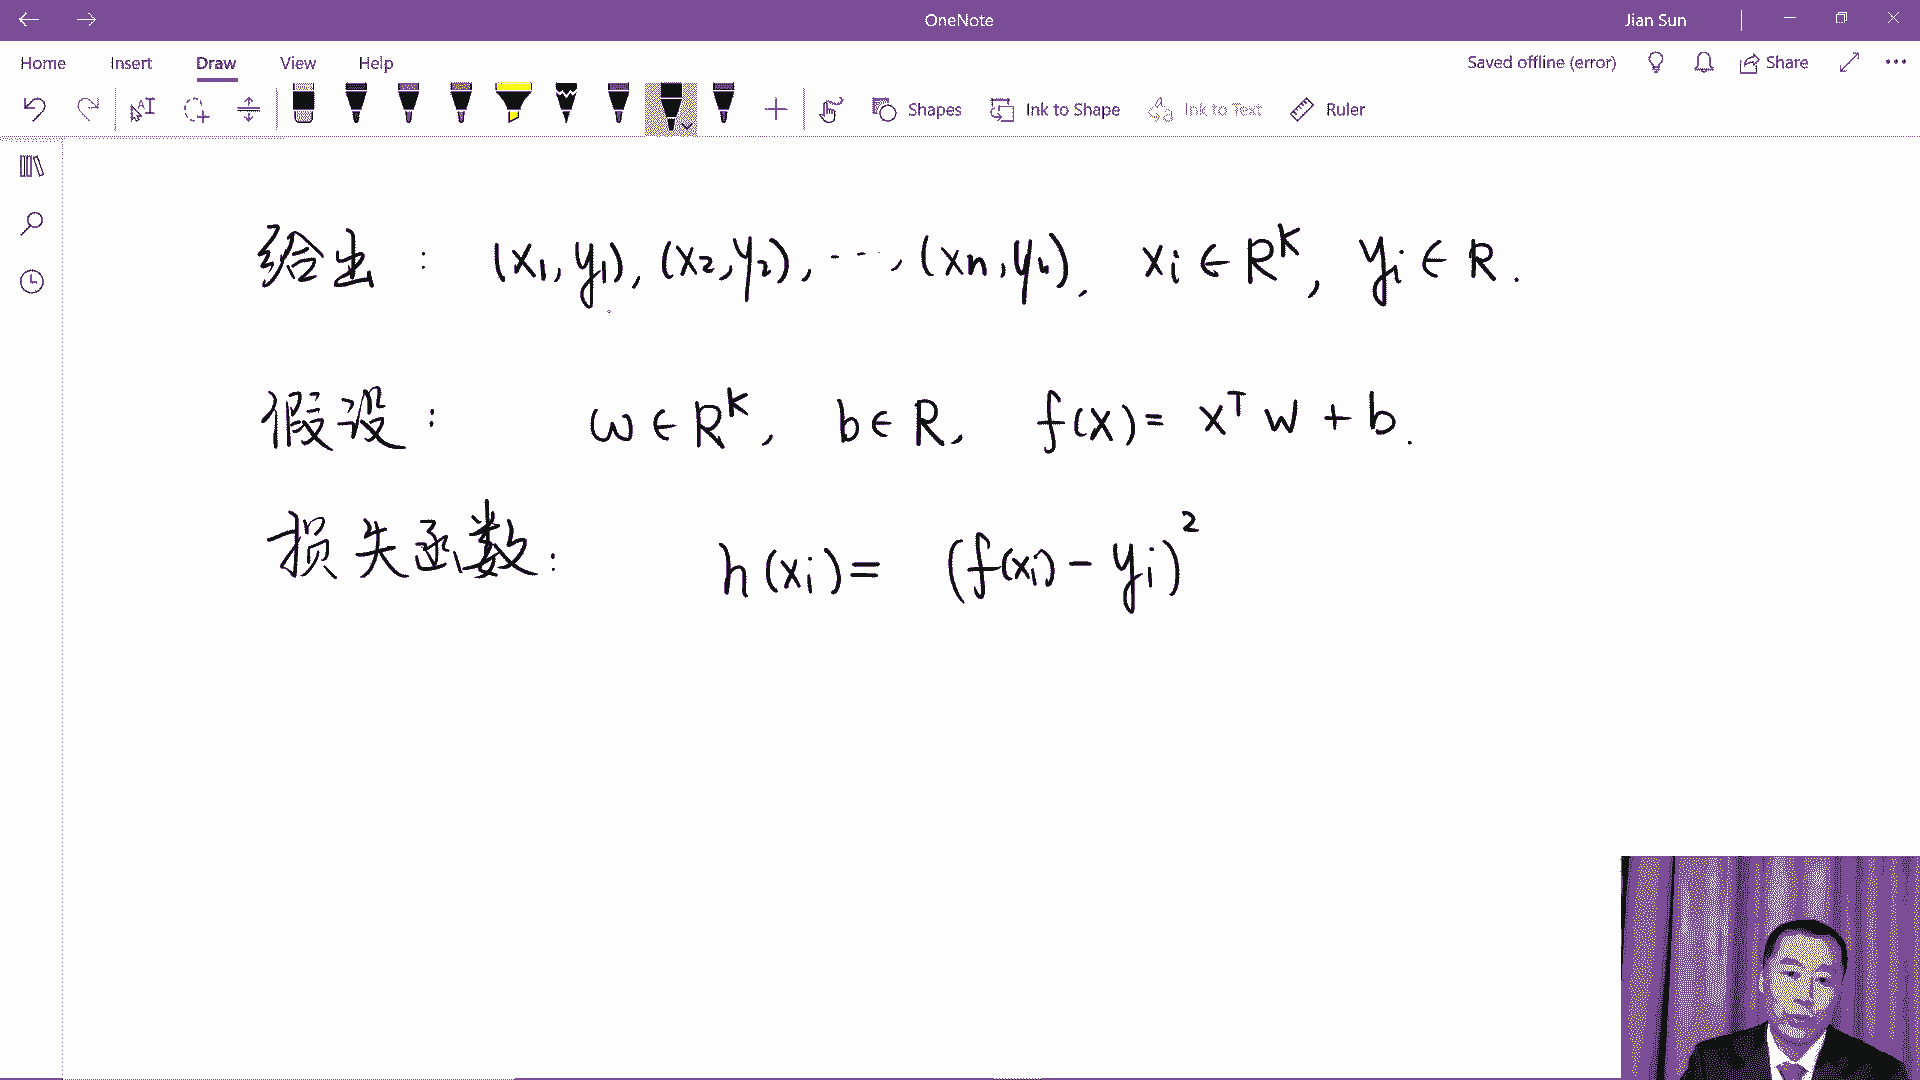 OneNote
Jian Sun
Home Insert Draw View Help
Saved offline (error) Share
Shapes Ink to Shape Ink to Text Ruler
给出 : (x₁,y₁), (x₂,y₂), ⋯, (xn,yn). xi ∈ Rᴷ, yi ∈ R.
假设 : w ∈ Rᴷ, b ∈ R, f(x) = xᵀw + b.
损失函数 : h(xi) = (f(xi) - yi)²